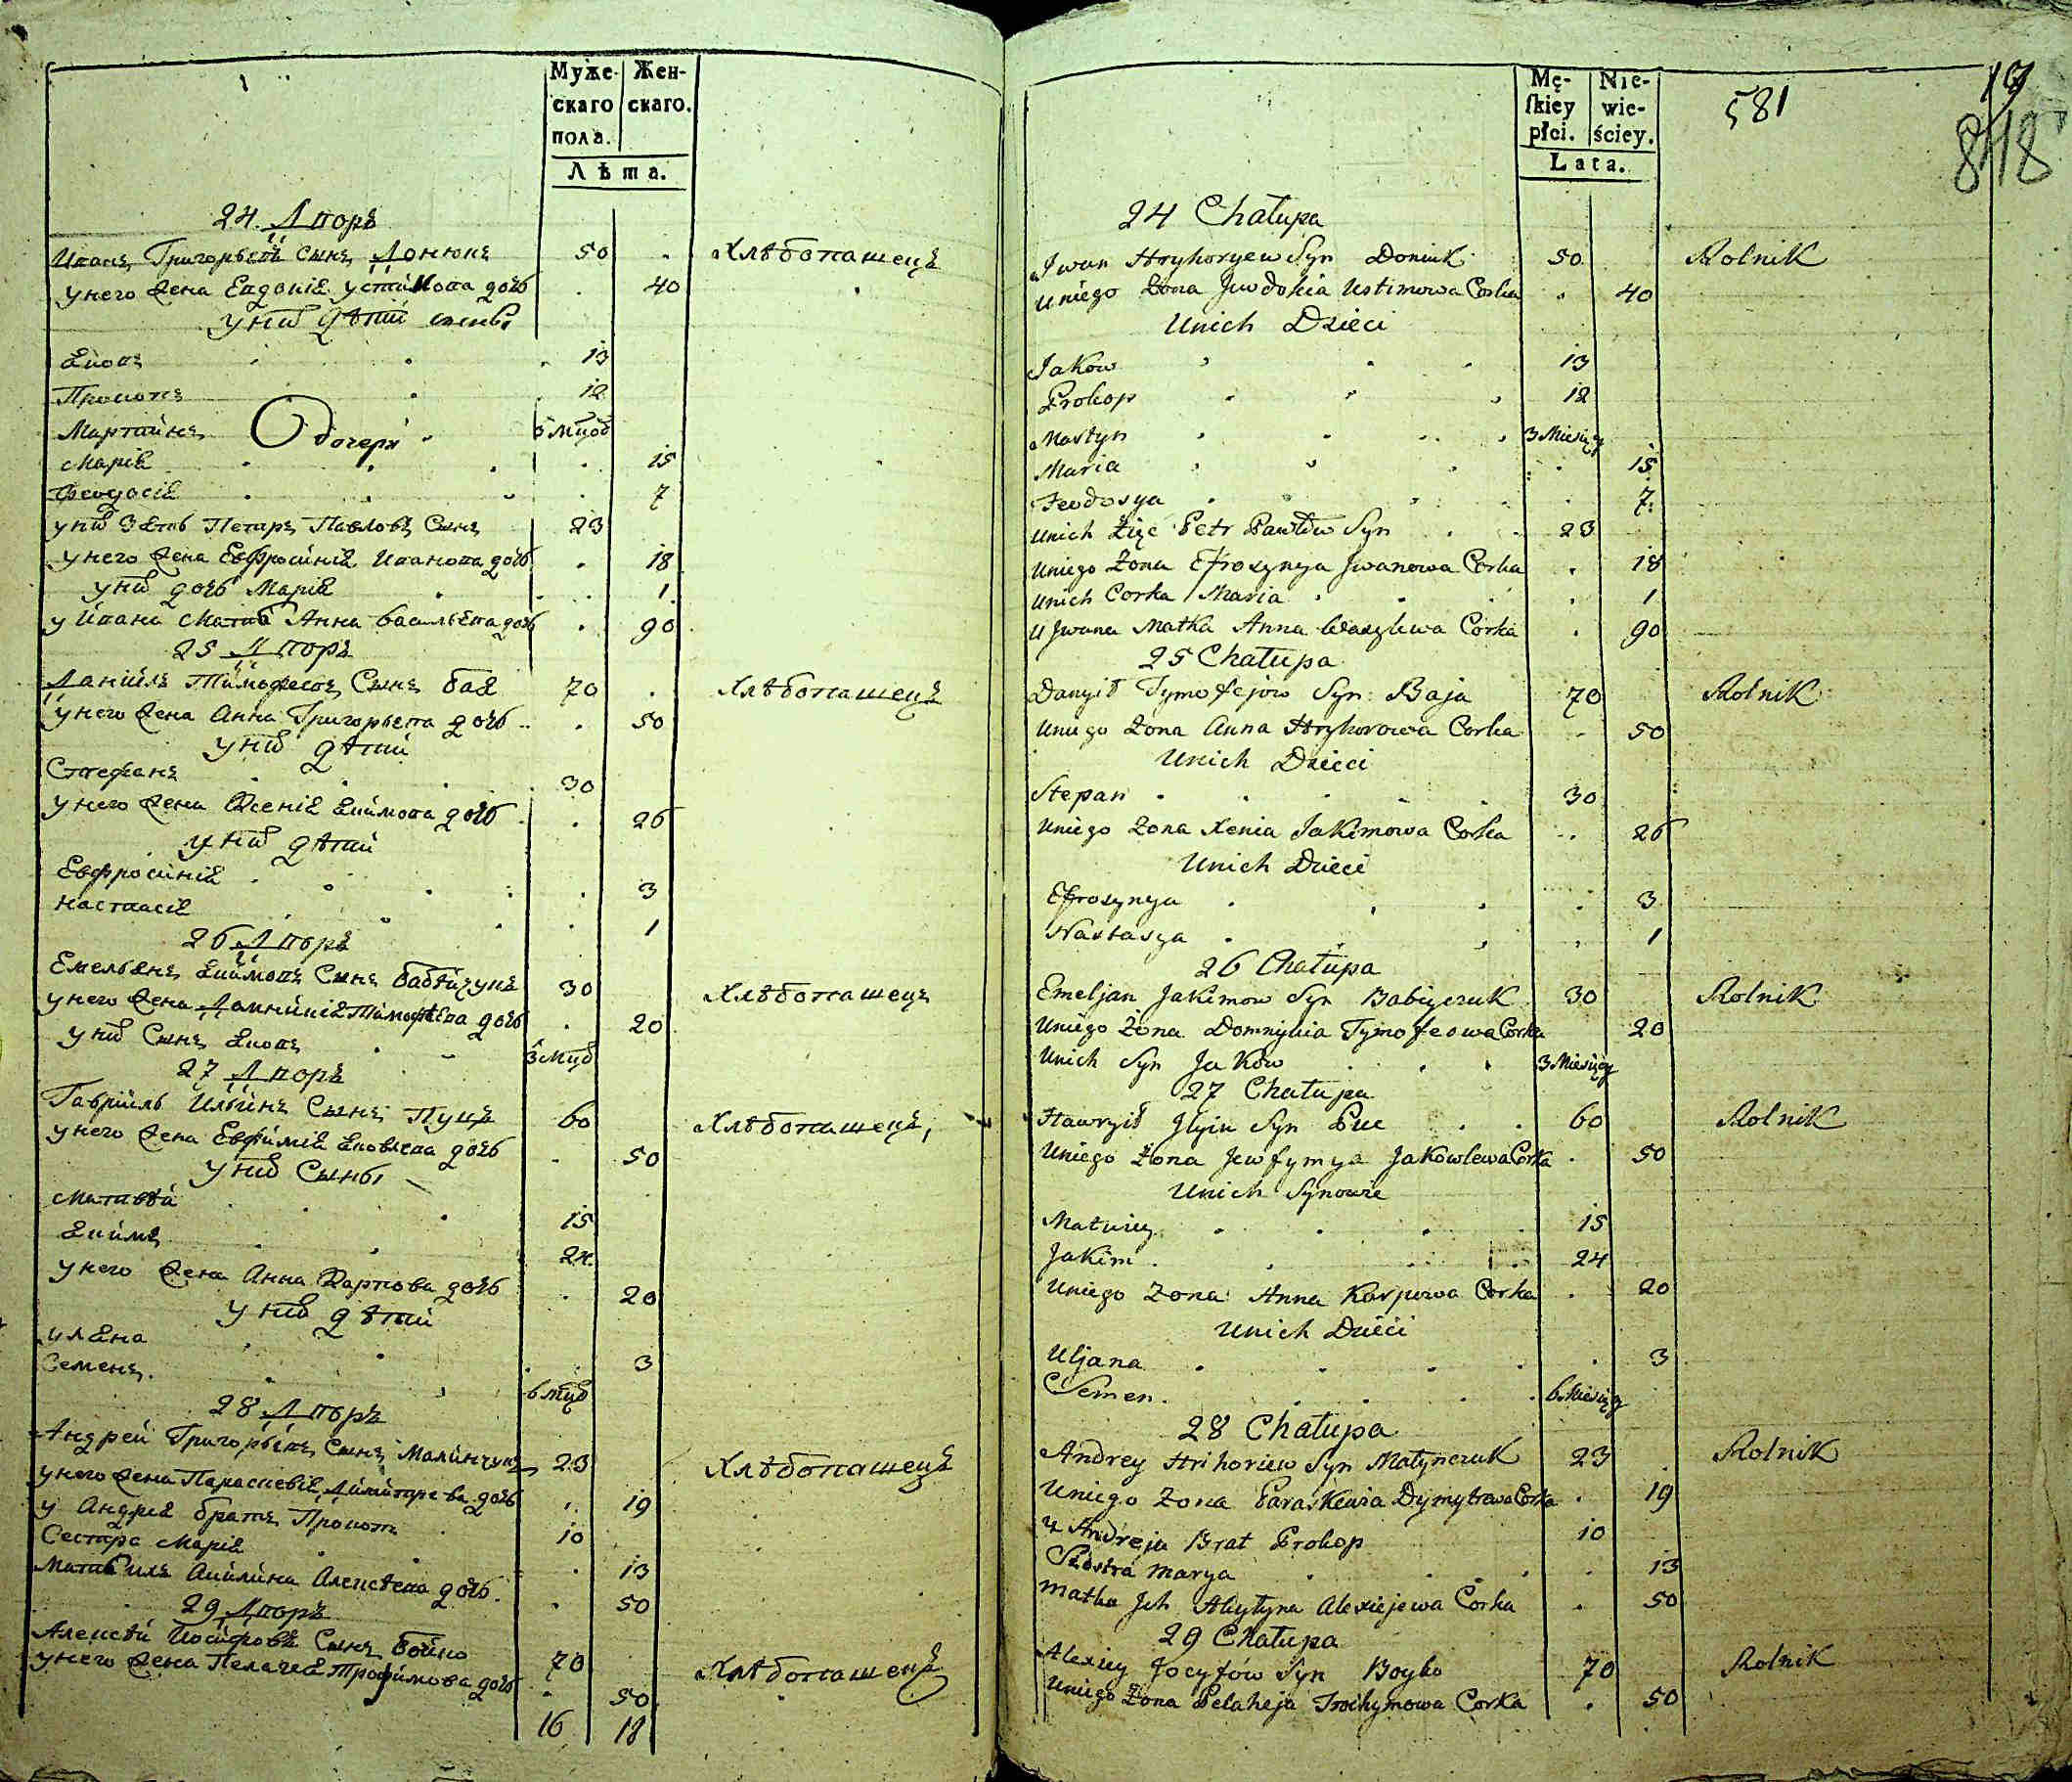 Муже- Жен-
скаго скаго.
пола.
Лѣта.
24 Дворъ
Иванъ Григорьевъ Сынъ Донюкъ 50 . Хлѣбопашецъ
у него жена Евдокія Устимова дочь . 40
у нихъ дѣти сыновья
Яковъ 13
Прокопъ 12
Мартинъ 3 мцовъ
дочери
Марія 15
Феодосія 7
у нихъ зять Петръ Павловъ Сынъ 23
у него жена Евфросинія Иванова дочь . 18
у нихъ дочь Марія . 1
у Ивана Мать Анна Васильева дочь . 90
25 Дворъ
Даніилъ Тимофеевъ Сынъ Бая 70 . Хлѣбопашецъ
у него жена Анна Григорьева дочь . 50
у нихъ дѣти
Стефанъ 30
у него жена Ксенія Якимова дочь . 26
у нихъ дѣти
Евфросинія . 3
Настасія . 1
26 Дворъ
Емельянъ Якимовъ Сынъ Бабійчукъ 30 Хлѣбопашецъ
у него жена Домникія Тимофѣева дочь . 20
у нихъ Сынъ Яковъ 3 мцъ
27 Дворъ
Гавріилъ Ильинъ Сынъ Пуцъ 60 Хлѣбопашецъ
у него жена Евфимія Яковлева дочь . 50
у нихъ Сыны
Матвѣй 15
Якимъ 24
у него жена Анна Карпова дочь . 20
у нихъ дѣти
Иляна . 3
Семенъ 6 мцъ
28 Дворъ
Андрей Григорьевъ Сынъ Малинчукъ 23 Хлѣбопашецъ
у него жена Параскевія Димитрева дочь . 19
у Андрея братъ Прокопъ 10
Сестра Марія . 13
Мать ихъ Акилина Алексѣева дочь . 50
29 Дворъ
Алексѣй Іосифовъ Сынъ Бойко 70 Хлѣбопашецъ
у него жена Пелагея Трофимова дочь . 50
16 18
Mę- Nie-
skiey wie-
płci. ściey.
Lata.
581
19
818
24 Chałupa
Jwan Hryhoryew Syn Doniuk 50 Rolnik
Uniego Żona Jewdokia Ustimowa Corka . 40
Unich Dzieci
Jakow 13
Prokop 12
Martyn 3 Miesięcy
Maria . 15
Feodosya . 7
Unich Zięć Petr Pawłów Syn 23
Uniego Żona Efrosynya Jwanowa Corka . 18
Unich Corka Maria . 1
U Jwana Matka Anna Wasylewa Corka . 90
25 Chałupa
Danyił Tymofejow Syn Baja 70 Rolnik
Uniego Żona Anna Hryhorowa Corka . 50
Unich Dzieci
Stepan 30
Uniego Żona Xenia Jakimowa Corka . 26
Unich Dzieci
Efrosynya . 3
Nastasya . 1
26 Chałupa
Emeljan Jakimow Syn Babiyczuk 30 Rolnik
Uniego Żona Domnykia Tymofeowa Corka 20
Unich Syn Jakow 3 Miesięcy
27 Chałupa
Hawryił Jlyin Syn Puc 60 Rolnik
Uniego Żona Jewfymya Jakowlewa Corka . 50
Unich Synowie
Matwiey 15
Jakim 24
Uniego Zona Anna Karpowa Corka . 20
Unich Dzieci
Uljana . 3
Semen 6 Miesięcy
28 Chałupa
Andrey Hrihoriew Syn Małynczuk 23 Rolnik
Uniego Zona Paraskewia Dymytrewa Corka . 19
U Andreja Brat Prokop 10
Siostra Marya . 13
Matka Jch Akyłyna Alexiejewa Corka . 50
29 Chałupa
Alexiey Jocyfów Syn Boyko 70 Rolnik
Uniego Żona Pelaheja Trochymowa Corka . 50